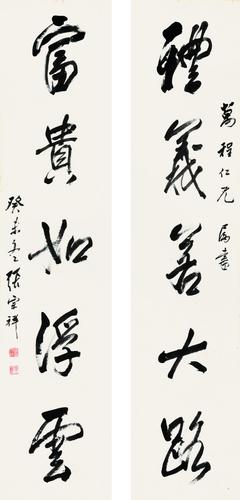 萬程仁兄 属書
禮義若大路
富貴如浮雲
癸未冬 張宗祥